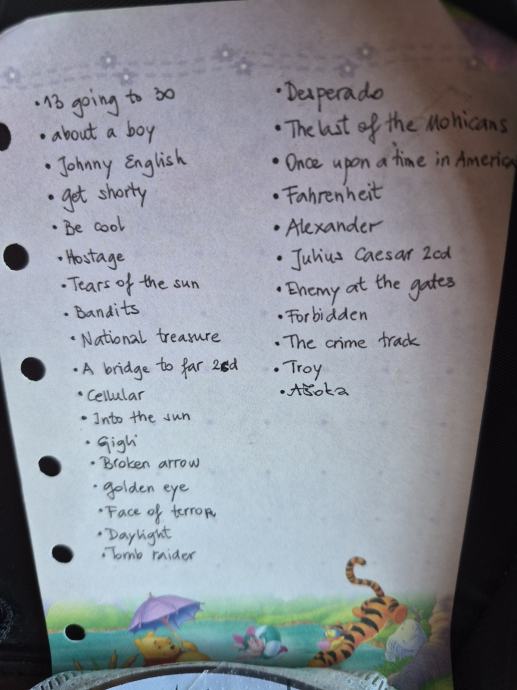 • 13 going to 30
• about a boy
• Johnny English
• get shorty
• Be cool
• Hostage
• Tears of the sun
• Bandits
• National treasure
• A bridge to far 2cd
• Cellular
• Into the sun
• Gigli
• Broken arrow
• golden eye
• Face of terror
• Daylight
• Tomb raider
• Desperado
• The last of the Mohicans
• Once upon a time in America
• Fahrenheit
• Alexander
• Julius Caesar 2cd
• Enemy at the gates
• Forbidden
• The crime track
• Troy
• Asoka